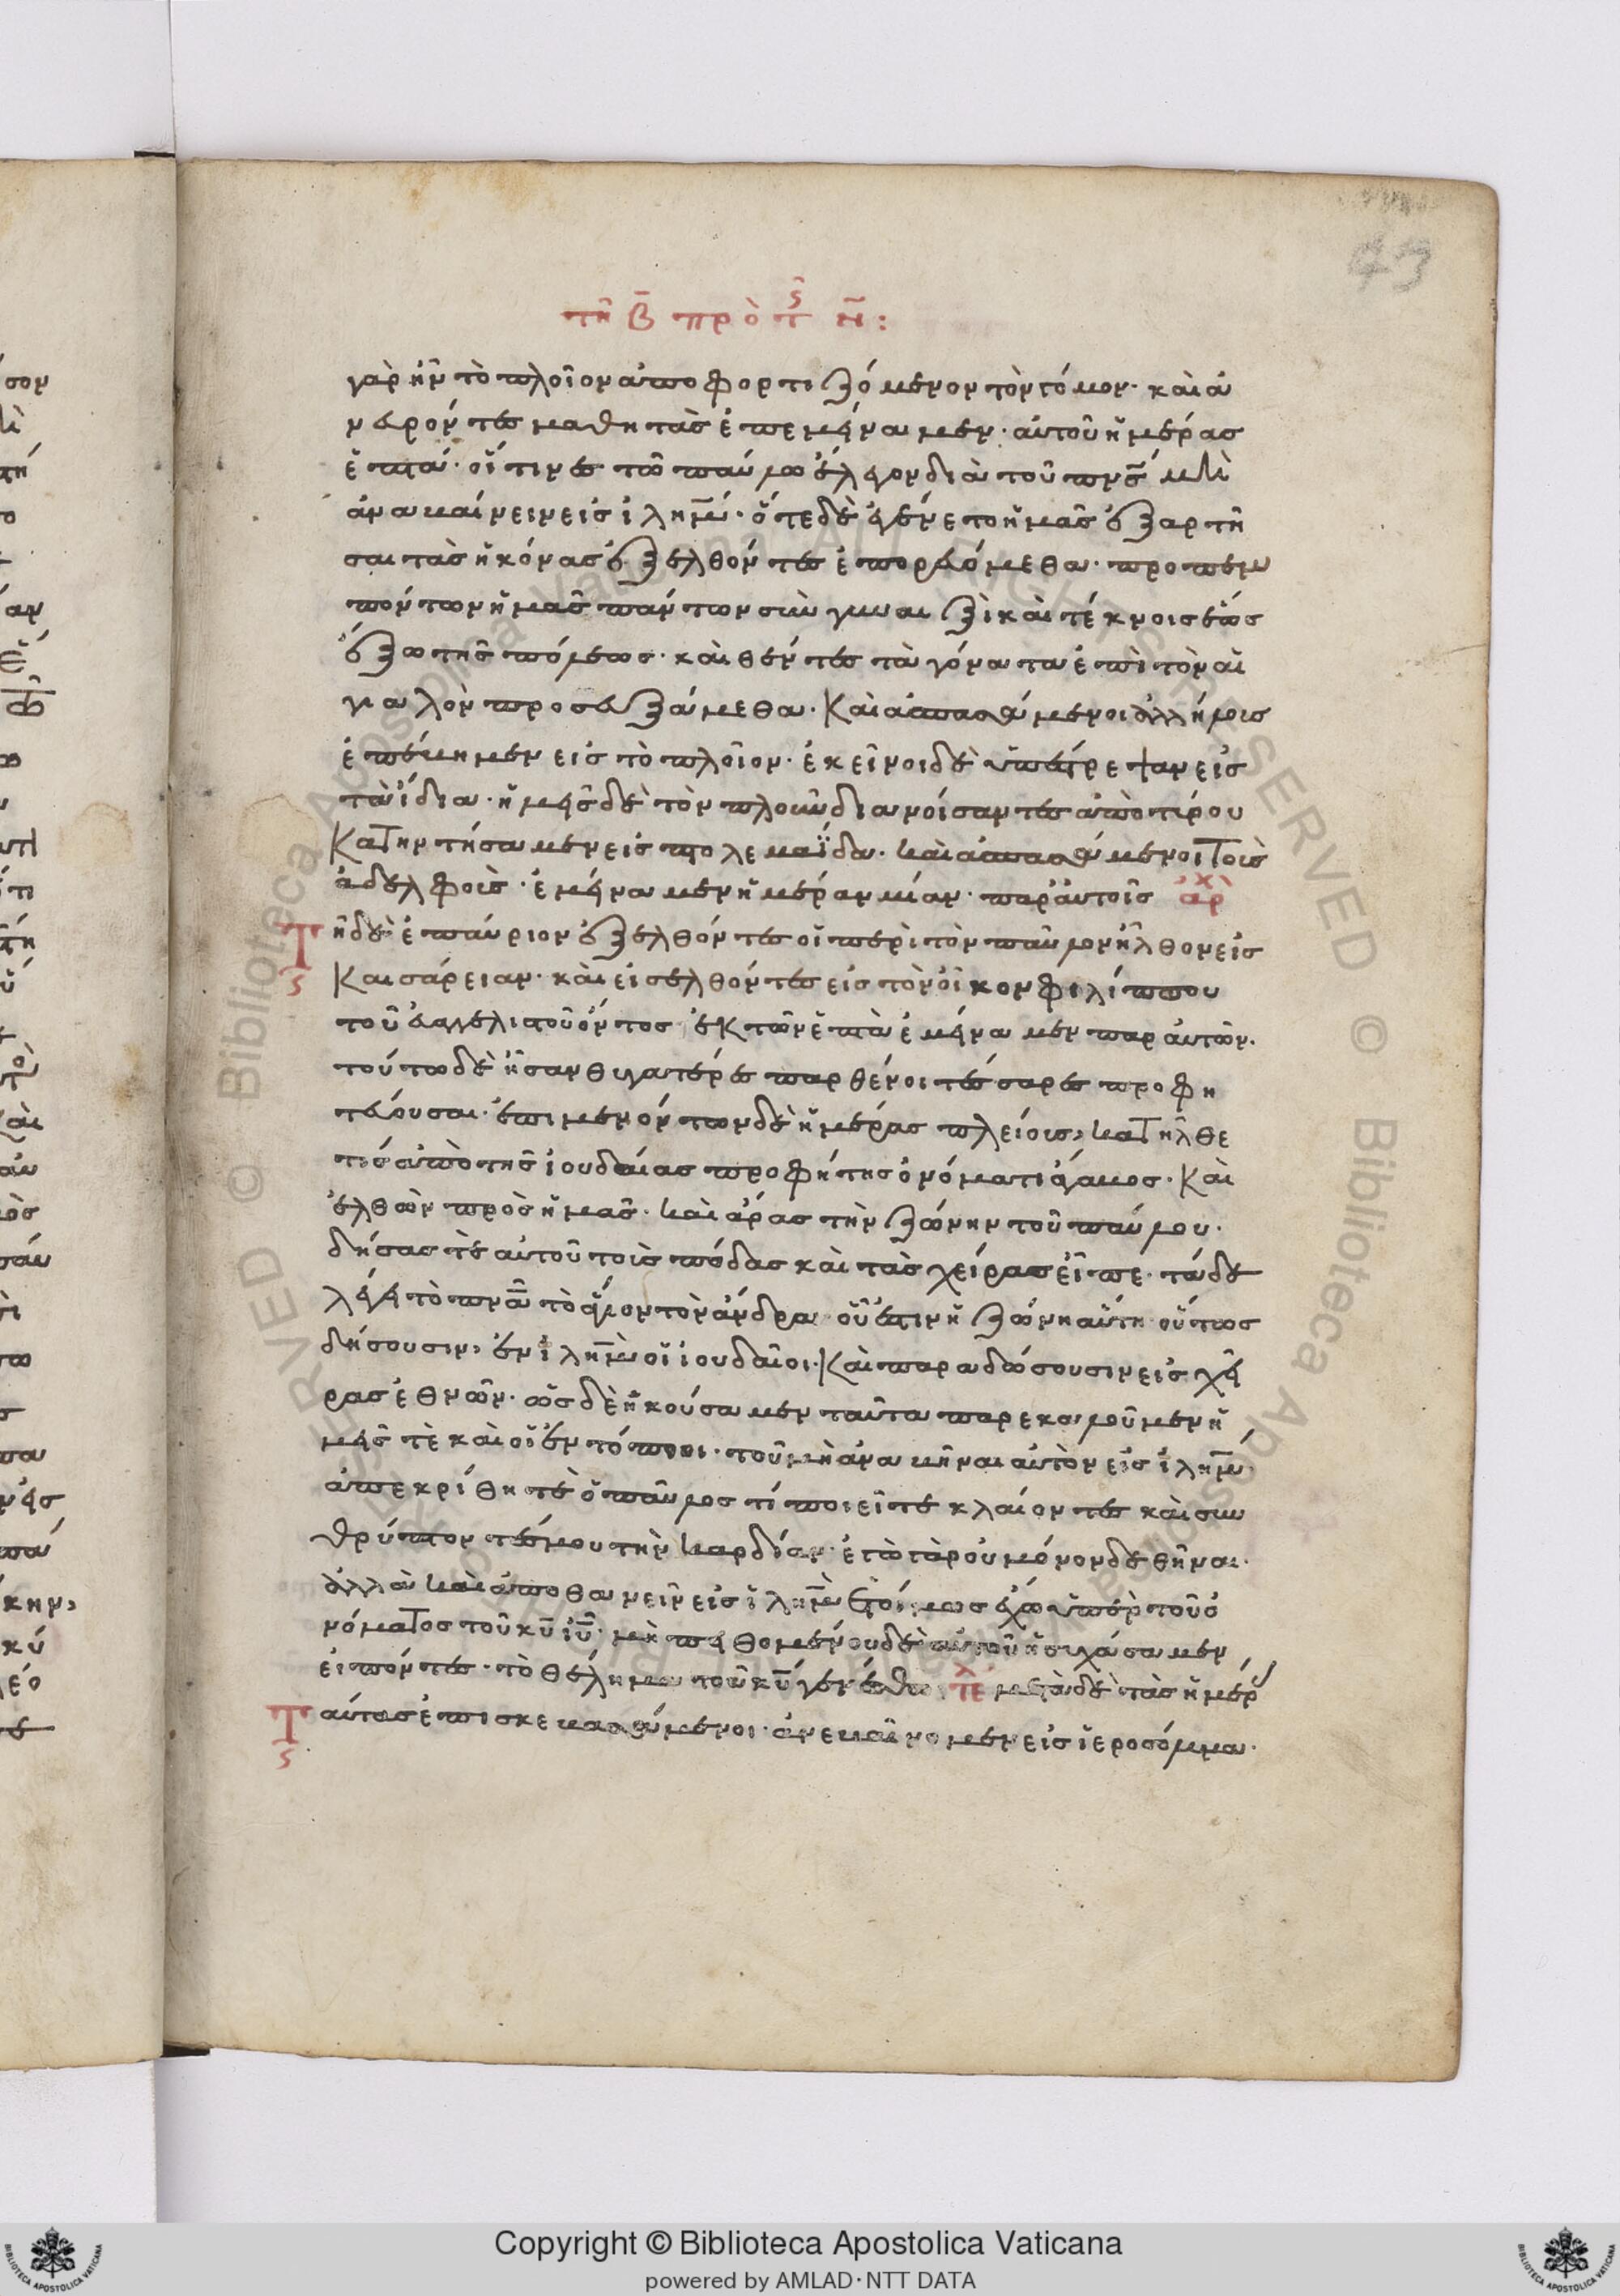 43
τῆ β̄ πρὸ τ̑ ς ν̄:
γὰρ ἦν τὸ πλοῖον ἀποφορτιζόμενον τὸν γόμον· καὶ ἀ
νευρόντες μαθητὰς ἐπεμείναμεν· αὐτοῦ ἡμέρας
ἑπτά· οἵτινες τῶ παύλω ἔλεγον διὰ τοῦ πν̅ς̅ μὴ
ἀναβαίνειν εἰς ἰλημ̅· ὅτε δὲ ἐγένετο ἡμᾶς ἐξαρτῆ
σαι τὰς ἡκόνας ἐξελθόντες ἐπορευόμεθα· προπεμ
πόντων ἡμᾶς πάντων σὺν γυναιξὶ καὶ τέκνοις ἕως
ἔξω τῆς πόλεως· καὶ θέντες τὰ γόνατα ἐπὶ τὸν αἰ
γιαλὸν προσευξάμεθα· καὶ ἀσπασάμενοι ἀλλήλοις
ἐπέβημεν εἰς τὸ πλοῖον· ἐκεῖνοι δὲ ὑπέστρεψαν εἰς
τὰ ἴδια· ἡμεῖς δὲ τὸν πλοῦν διανοίσαντες ἀπὸ τύρου
κατηντήσαμεν εἰς πτολεμαΐδα· καὶ ἀσπασάμενοι τοὶς
ἀδελφοὶς· ἐμείναμεν ἡμέραν μίαν· παρ' αὐτοῖς ἀρχ
Τῆ δὲ ἐπαύριον ἐξελθόντες οἱ περὶ τὸν παῦλον ἦλθον εἰς
ς καισάρειαν· καὶ εἰσελθόντες εἰς τὸν οἶκον φιλίππου
τοῦ εὐαγγελιστοῦ ὄντος ἐκ τῶν ἑπτὰ ἐμείναμεν παρ αὐτῶν·
τούτω δὲ ἦσαν θυγατέρες παρθένοι τέσσαρες προφη
τεύουσαι· ἐπιμενόντων δὲ ἡμέρας πλείοις, κατῆλθε
τίς ἀπὸ τῆς ἰουδαίας προφήτης ὀνόματι ἄγαβος· καὶ
ἐλθὼν πρὸς ἡμᾶς· καὶ ἄρας τὴν ζώνην τοῦ παύλου·
δήσας τὲ αὐτοῦ τοὶς πόδας καὶ τὰς χείρας εἶπε· τάδε
λέγει τὸ πν̅α̅ τὸ ἅγιον τὸν ἄνδρα οὗ ἐστιν ἡ ζώνη αὕτη οὕτως
δήσουσιν, ἐν ἰλημ̅ οἱ ἰουδαῖοι· καὶ παραδώσουσιν εἰς χεῖ
ρας ἐθνῶν· ὡς δὲ ἠκούσαμεν ταῦτα παρεκαλοῦμεν ἡ
μεῖς τὲ καὶ οἱ ἐντόποι· τοῦ μὴ ἀναβῆναι αὐτὸν εἰς ἰλημ̅·
ἀπεκρίθη τὲ ὁ παῦλος τί ποιεῖτε κλαίοντες καὶ συν
θρύπτοντές μου τὴν καρδίαν· ἐγὼ γὰρ οὐ μόνον δεθῆναι·
ἀλλὰ καὶ ἀποθανεῖν εἰς ἰλημ̅ ἑτοίμως ἔχω ὑπὲρ τοῦ ὀ
νόματος τοῦ κ̅υ̅ ἰ̅υ̅· μὴ πειθομένου δὲ αὐτοῦ ἡσυχάσαμεν
εἰπόντες· τὸ θέλημα τοῦ κ̅υ̅ γενέσθω τέλ μετὰ δὲ τὰς ἡμέρ
Τ αύτας ἐπισκεψασάμενοι· ἀνεβαίνομεν εἰς ἱεροσόλυμα·
ς
Copyright © Biblioteca Apostolica Vaticana
powered by AMLAD·NTT DATA